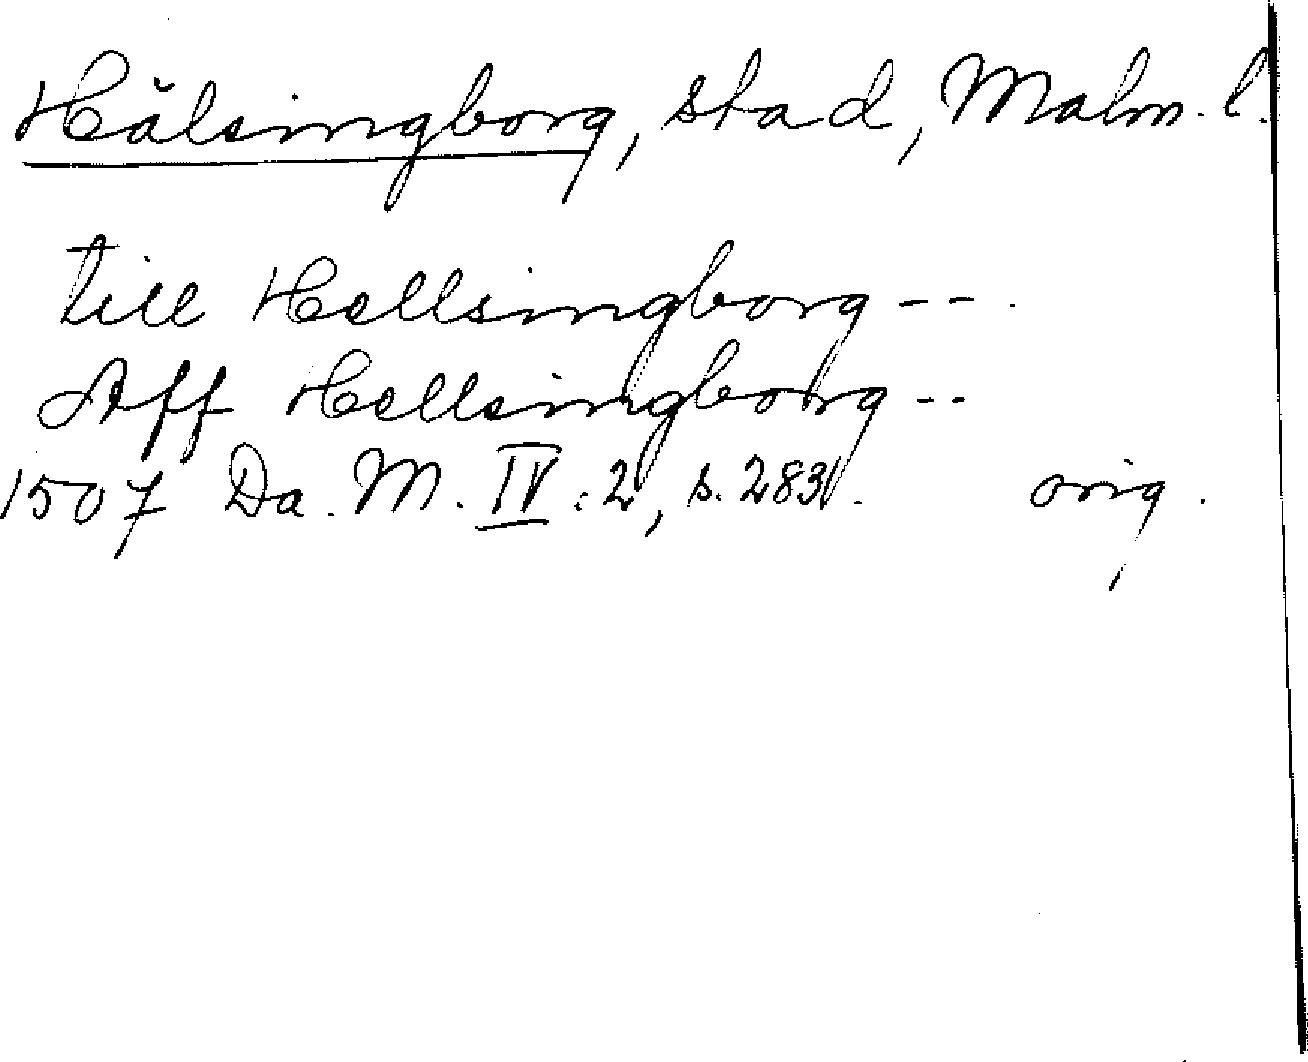 Hälsingborg, stad, Malm. l.
till Hellsingborg---.
Aff Hellsingborg--
1507 Da. M. IV:2, s. 283. orig.